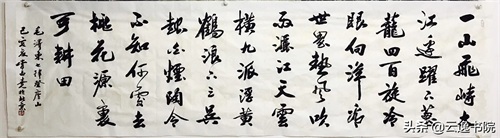 一山飛峙大
江邊躍上蔥
蘢四百旋冷
眼向洋看
世界熱風吹
雨灑江天雲
橫九派浮黃
鶴浪下三吳
起白煙陶令
不知何處去
桃花源裏
可耕田
毛澤東七律登廬山
己亥夏雲
头条@云逸书院